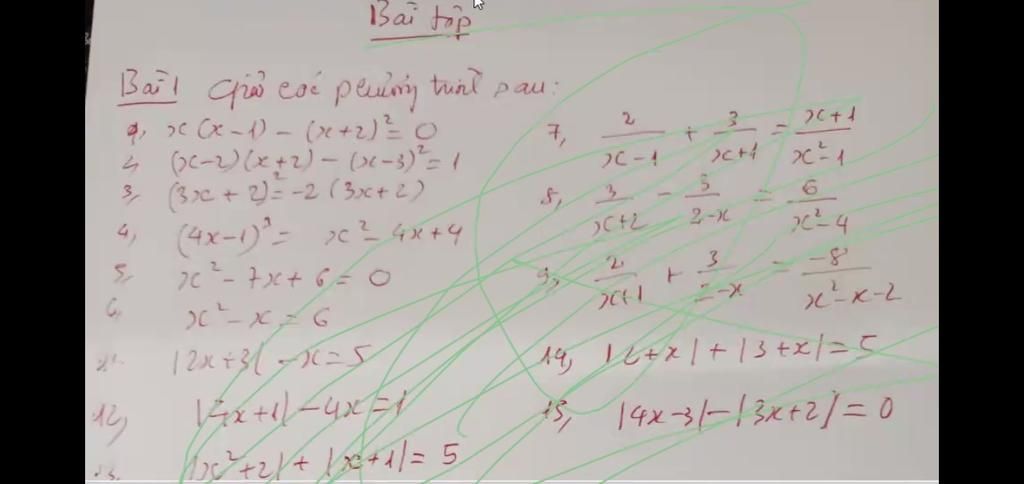 Bài tập
Bài 1 Giải các phương trình sau:
1, x(x-1) - (x+2)² = 0
2, (x-2)(x+2) - (x-3)² = 1
3, (3x+2)² = -2(3x+2)
4, (4x-1)³ = x² - 4x + 4
5, x² - 7x + 6 = 0
6, x² - x = 6
|2x+3| - x = 5
12, |4x+1| - 4x = 1
13. |x²+2| + |x+1| = 5
7, 2/(x-1) + 3/(x+1) = (x+1)/(x²-1)
8, 3/(x+2) - 5/(2-x) = 6/(x²-4)
9, 2/(x+1) + 3/(2-x) = -8/(x²-x-2)
14, |2+x| + |3+x| = 5
15, |4x-3| - |3x+2| = 0